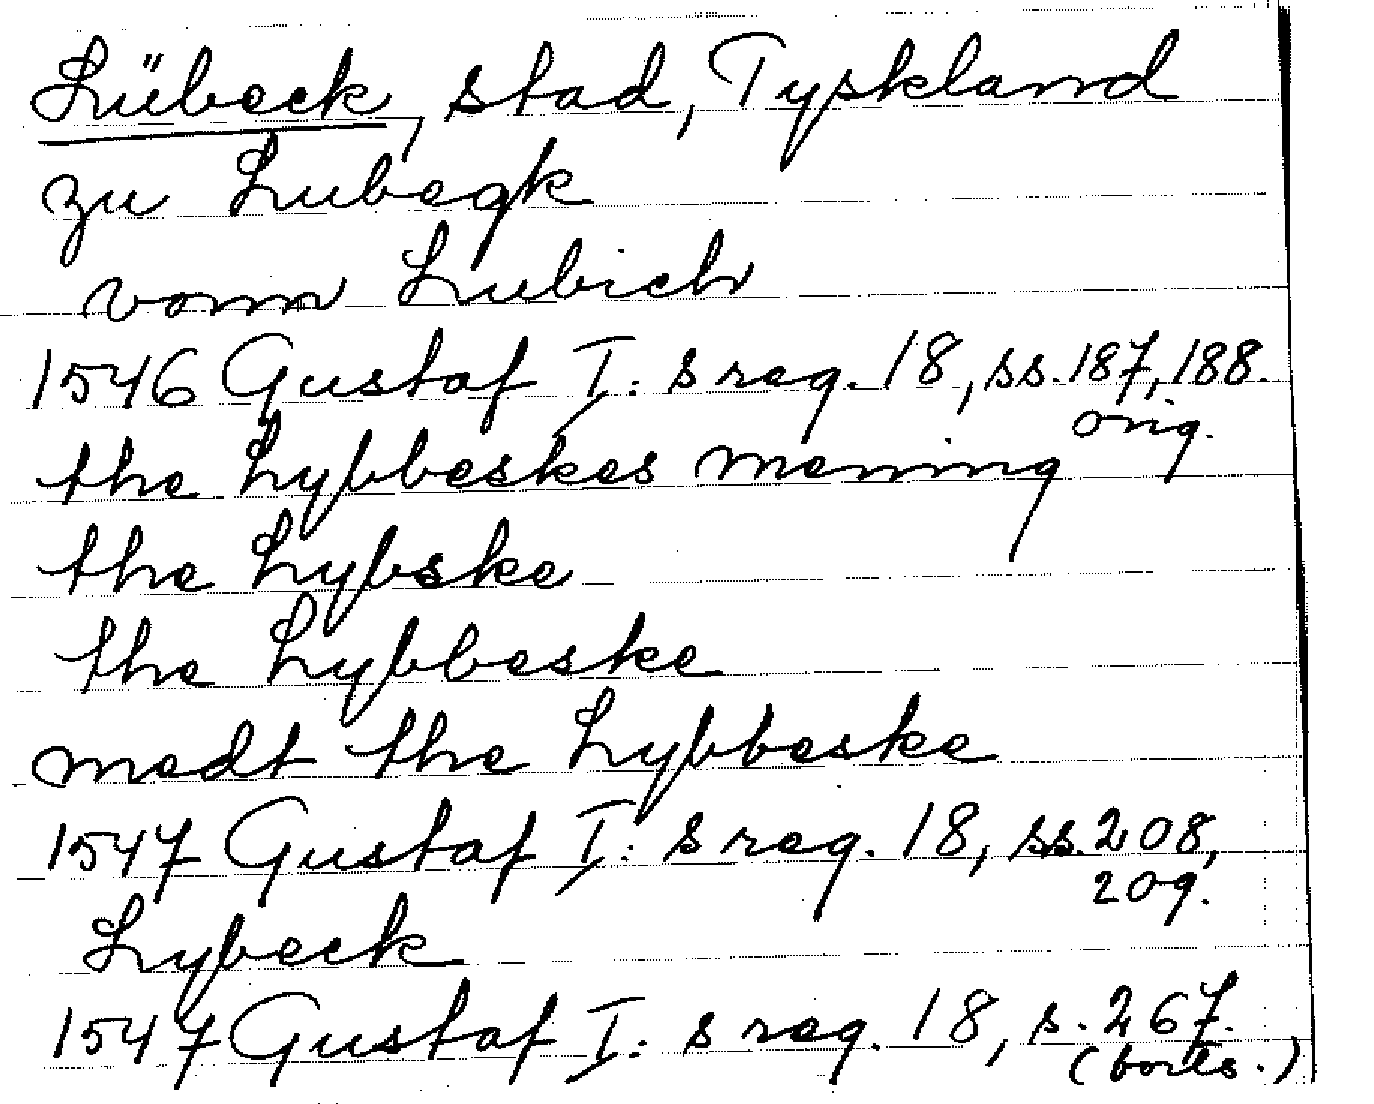 Lübeck, stad, Tyskland
zu Lubegk
vonn Lubich
1546 Gustaf I: s reg. 18, ss. 187, 188.
orig.
the Lybbeskes mening
the Lybske
the Lybbeske
medt the Lybbeske
1547 Gustaf I: s reg. 18, ss. 208,
209.
Lybeck
1547 Gustaf I: s reg. 18, s. 267.
(forts.)